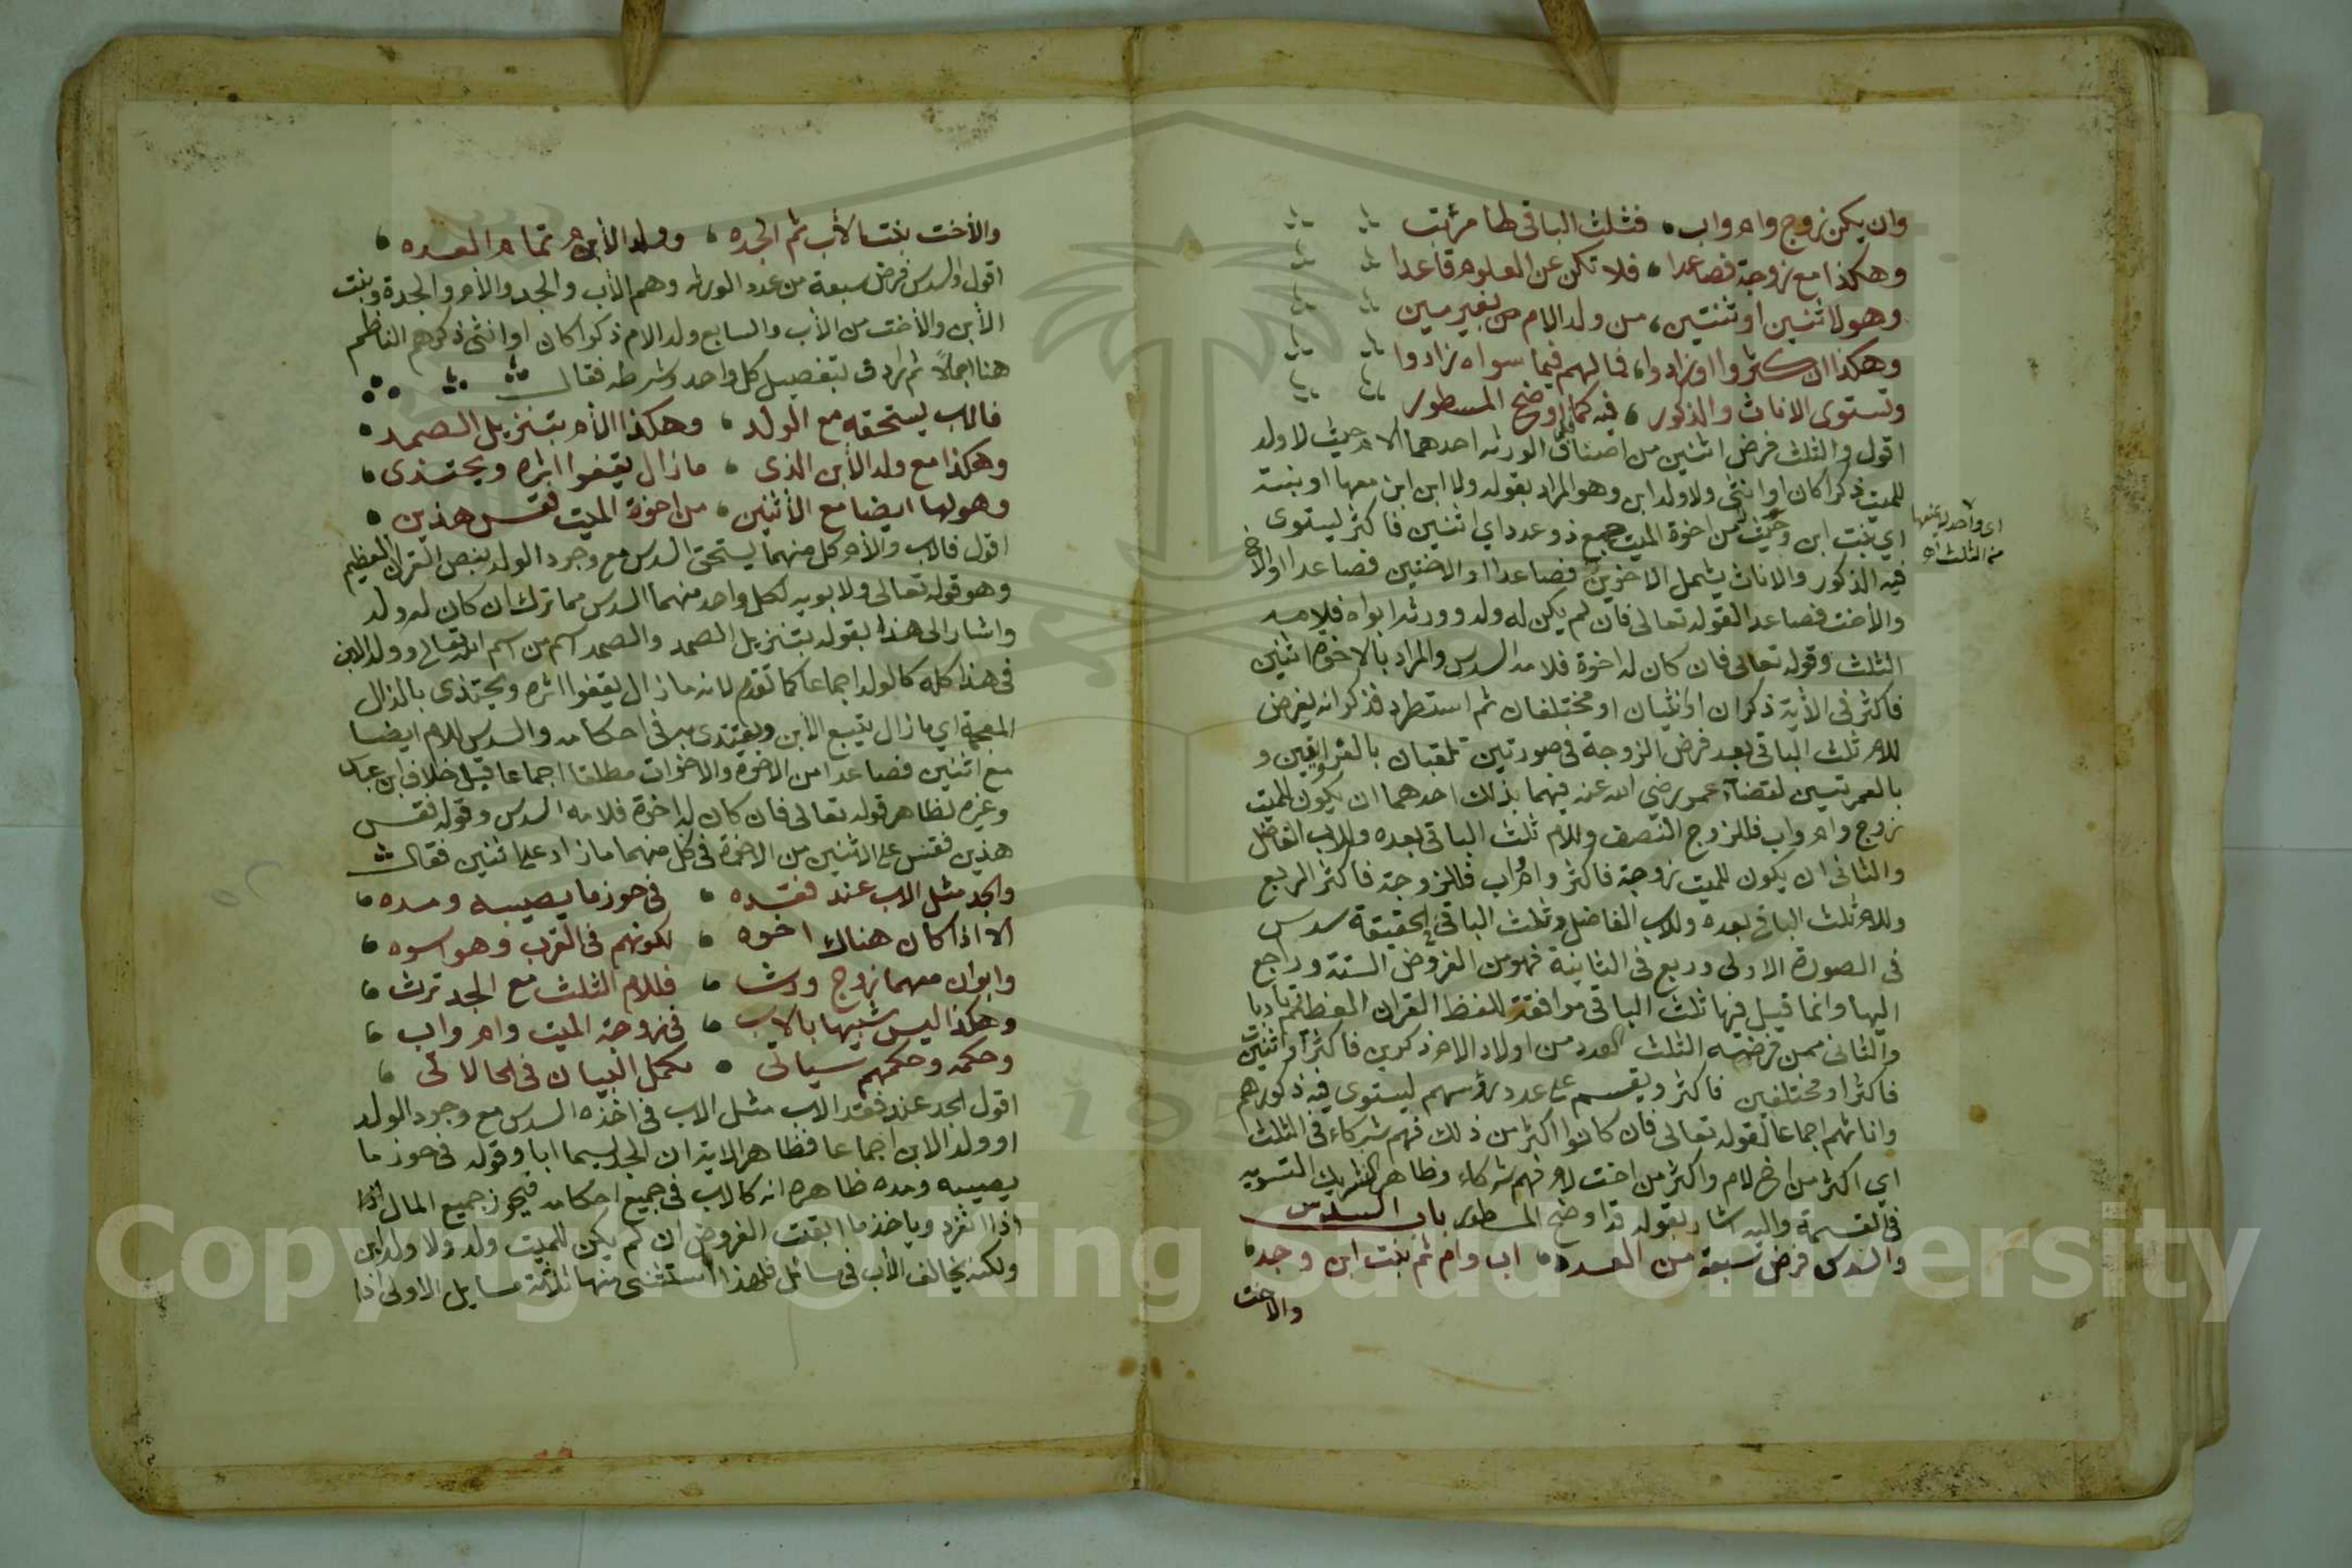 وان يكن زوج وام واب فثلث الباقي لها مرتب
وهكذا مع زوجة فصاعدا فلا تكن عن العلوم قاعدا
وهو لاثنين او ثنتين من ولد الام من بغير مين
وهكذا ان كثروا او زادوا فما لهم فيما سواه زادوا
وتستوى الاناث والذكور فيه كما قد اوضح المسطور
اقول والثلث فرض اثنين من اصناف الورثه احدهما الام حيث لا ولد
للميت ذكرا كان او انثى ولا ولد ابن وهو المراد بقوله ولا ابن ابن معها او بنته
اي بنت ابن وحيث لا من اخوة الميت جمع ذو عدد اي اثنين فاكثر يستوى
اى واحد يمنعها
من الثلث اه
فيه الذكور والاناث يشمل الاخوين فصاعدا او الاختين فصاعدا او الاخ
والأخت فصاعدا لقوله تعالى فان لم يكن له ولد وورثه ابواه فلامه
الثلث وقوله تعالى فان كان له اخوة فلامه السدس والمراد بالاخوة اثنين
فاكثر في الأية ذكران او انثيان او مختلفان ثم استطرد فذكر انه يفرض
للام ثلث الباقي بعد فرض الزوجة في صورتين تلقبان بالغراوين و
بالعمريتين لقضآء عمر رضي الله عنه فيهما بذلك احدهما ان يكون للميت
زوج وام واب فللزوج النصف وللام ثلث الباقي بعده وللاب الفاضل
والثاني ان يكون للميت زوجة فاكثر وام واب فللزوجة فاكثر الربع
وللام ثلث الباقي بعده وللاب الفاضل وثلث الباقي في الحقيقة سدس
في الصورة الاولى وربع في الثانية فهو من الفروض الستة وراجع
اليها وانما قيل فيها ثلث الباقي موافقة للفظ القرآن العظيم تأدبا
والثاني ممن فرضه الثلث العدد من اولاد الام ذكرين فاكثر او اثنتين
فاكثر او مختلفين فاكثر ويقسم على عدد رؤسهم يستوى فيه ذكورهم
واناثهم اجماعا لقوله تعالى فان كانوا اكثر من ذلك فهم شركاء في الثلث
اي اكثر من اخ لام واكثر من اخت لام فهم شركاء وظاهر التشريك التسويه
في القسمة واليه اشار بقوله قد اوضح المسطور باب السدس
والسدس فرض سبعة من العدد اب وام ثم بنت ابن وجد
والاخت
والأخت بنت الأب ثم الجده وولد الأم تمام العده
اقول والسدس فرض سبعة من عدد الورثه وهم الأب والجد والأم والجدة وبنت
الأبن والأخت من الأب والسابع ولد الام ذكرا كان او انثى ذكرهم الناظم
هنا اجمالاً ثم اردف بتفصيل كل واحد وشرطه فقال
فالاب يستحقه مع الولد وهكذا الأم بتنزيل الصمد
وهكذا مع ولد الأبن الذى مازال يقفوا اثره ويحتذى
وهو لها ايضا مع الأثنين من اخوة الميت فقس هذين
اقول فالاب والأم كل منهما يستحق السدس مع وجود الولد بنص القرآن العظيم
وهو قوله تعالى ولابويه لكل واحد منهما السدس مما ترك ان كان له ولد
واشار الى هذا بقوله بتنزيل الصمد والصمد اسم من اسم الله تعالى وولد الابن
في هذا كله كالولد اجماعا كما تقدم لانه مازال يقفوا اثره ويحتذى بالذال
المعجمة اي مازال يتبع الأبن ويقتدى به في احكامه والسدس للام ايضا
مع اثنين فصاعدا من الاخوة والاخوات مطلقا اجماعا قبل خلاف ابن عباس
وغيره لظاهر قوله تعالى فان كان له اخوة فلامه السدس وقوله فقس
هذين فقس على الاثنين من الاخوة في كل منهما مازاد على اثنين فقال
والجد مثل الاب عند فقده في حوز ما يصيبه ومده
الا اذا كان هناك اخوه لكونهم في القرب وهو اسوه
وابوان معهما زوج ورث فللام الثلث مع الجد ترث
وهكذا ليس شبيها بالاب في زوجة الميت وام واب
وحكمه وحكمهم سياتي مكمل البيان في الحالات
اقول الجد عند فقد الاب مثل الاب في اخذه السدس مع وجود الولد
او ولد الابن اجماعا فظاهر الاية ان الجد يسما ابا وقوله في حوز ما
يصيبه ومده ظاهره انه كالاب في جميع احكامه فيحوز جميع المال اذا
اذا انفرد وياخذ ما ابقت الفروض ان لم يكن للميت ولد ولا ولد ابن
ولكنه يخالف الأب في مسائل فلهذا استثنى منها ثلاثة مسايل الاولى اذا
Copyright © King Saud University